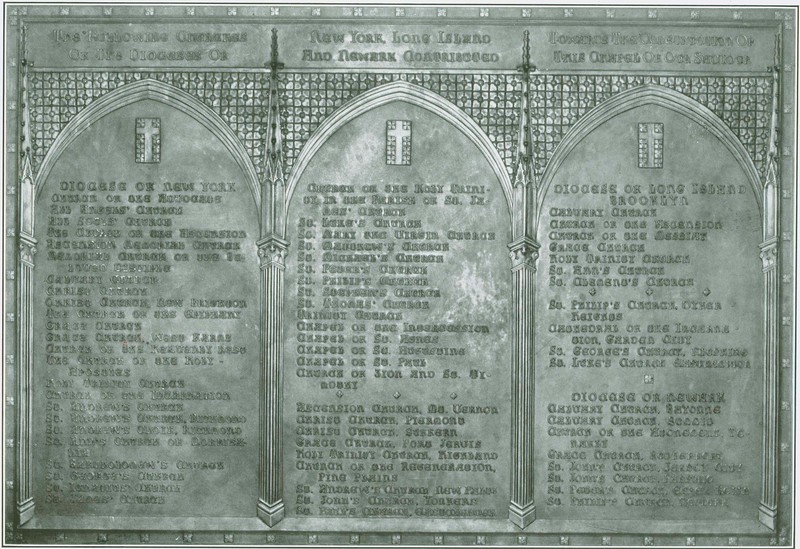 The Following Churches
Of The Dioceses Of
New York, Long Island
And Newark Contributed
Towards The
This Chapel Of Our Saviour
Diocese of New York
Church of the Advocate
All Angels' Church
All Souls' Church
The Church of the Ascension
Ascension Memorial Church
Memorial Church of the
Calvary Church
Christ Church
Christ Church, New Brighton
The Church of the Epiphany
Grace Church
Grace Church, West Farms
Church of the Heavenly Rest
The Church of the Holy
Apostles
Holy Trinity Church
Church of the Incarnation
St. Andrew's Church
St. Andrew's Church, Richmond
St. Church, Richmond
St. Ann's Church of Morrisania
St. Bartholomew's Church
St. George's Church
St. Ignatius' Church
St. James' Church
Church of the Holy Trinity
In the Parish of St. James'
Church
St. Luke's Church
St. Mary the Virgin Church
St. Matthew's Church
St. Michael's Church
St. Peter's Church
St. Philip's Church
St. Stephen's Church
St. Thomas' Church
Trinity Church
Chapel of the Intercession
Chapel of St. Agnes
Chapel of St. Augustine
Chapel of St. Paul
Church of Zion And St. Timothy
Ascension Church, Mt. Vernon
Christ Church, Piermont
Christ Church, Suffern
Grace Church, Port Jervis
Holy Trinity Church, Highland
Church of the Regeneration,
Pine Plains
St. Andrew's Church New Paltz
St. John's Church, Yonkers
St. Paul's Church,
Diocese of Long Island
Brooklyn
Calvary Church
Church of the Ascension
Church of the Messiah
Grace Church
Holy Trinity Church
St. Ann's Church
St. Church
St. Philip's Church, Dyker
Heights
Cathedral of the Incarnation,
Garden City
St. George's Church, Flushing
St. Luke's Church
Diocese of Newark
Calvary Church, Bayonne
Calvary Church, Summit
Church of the
Grace Church,
St. John's Church, Jersey City
St. John's Church, Passaic
St. Church,
St. Church,